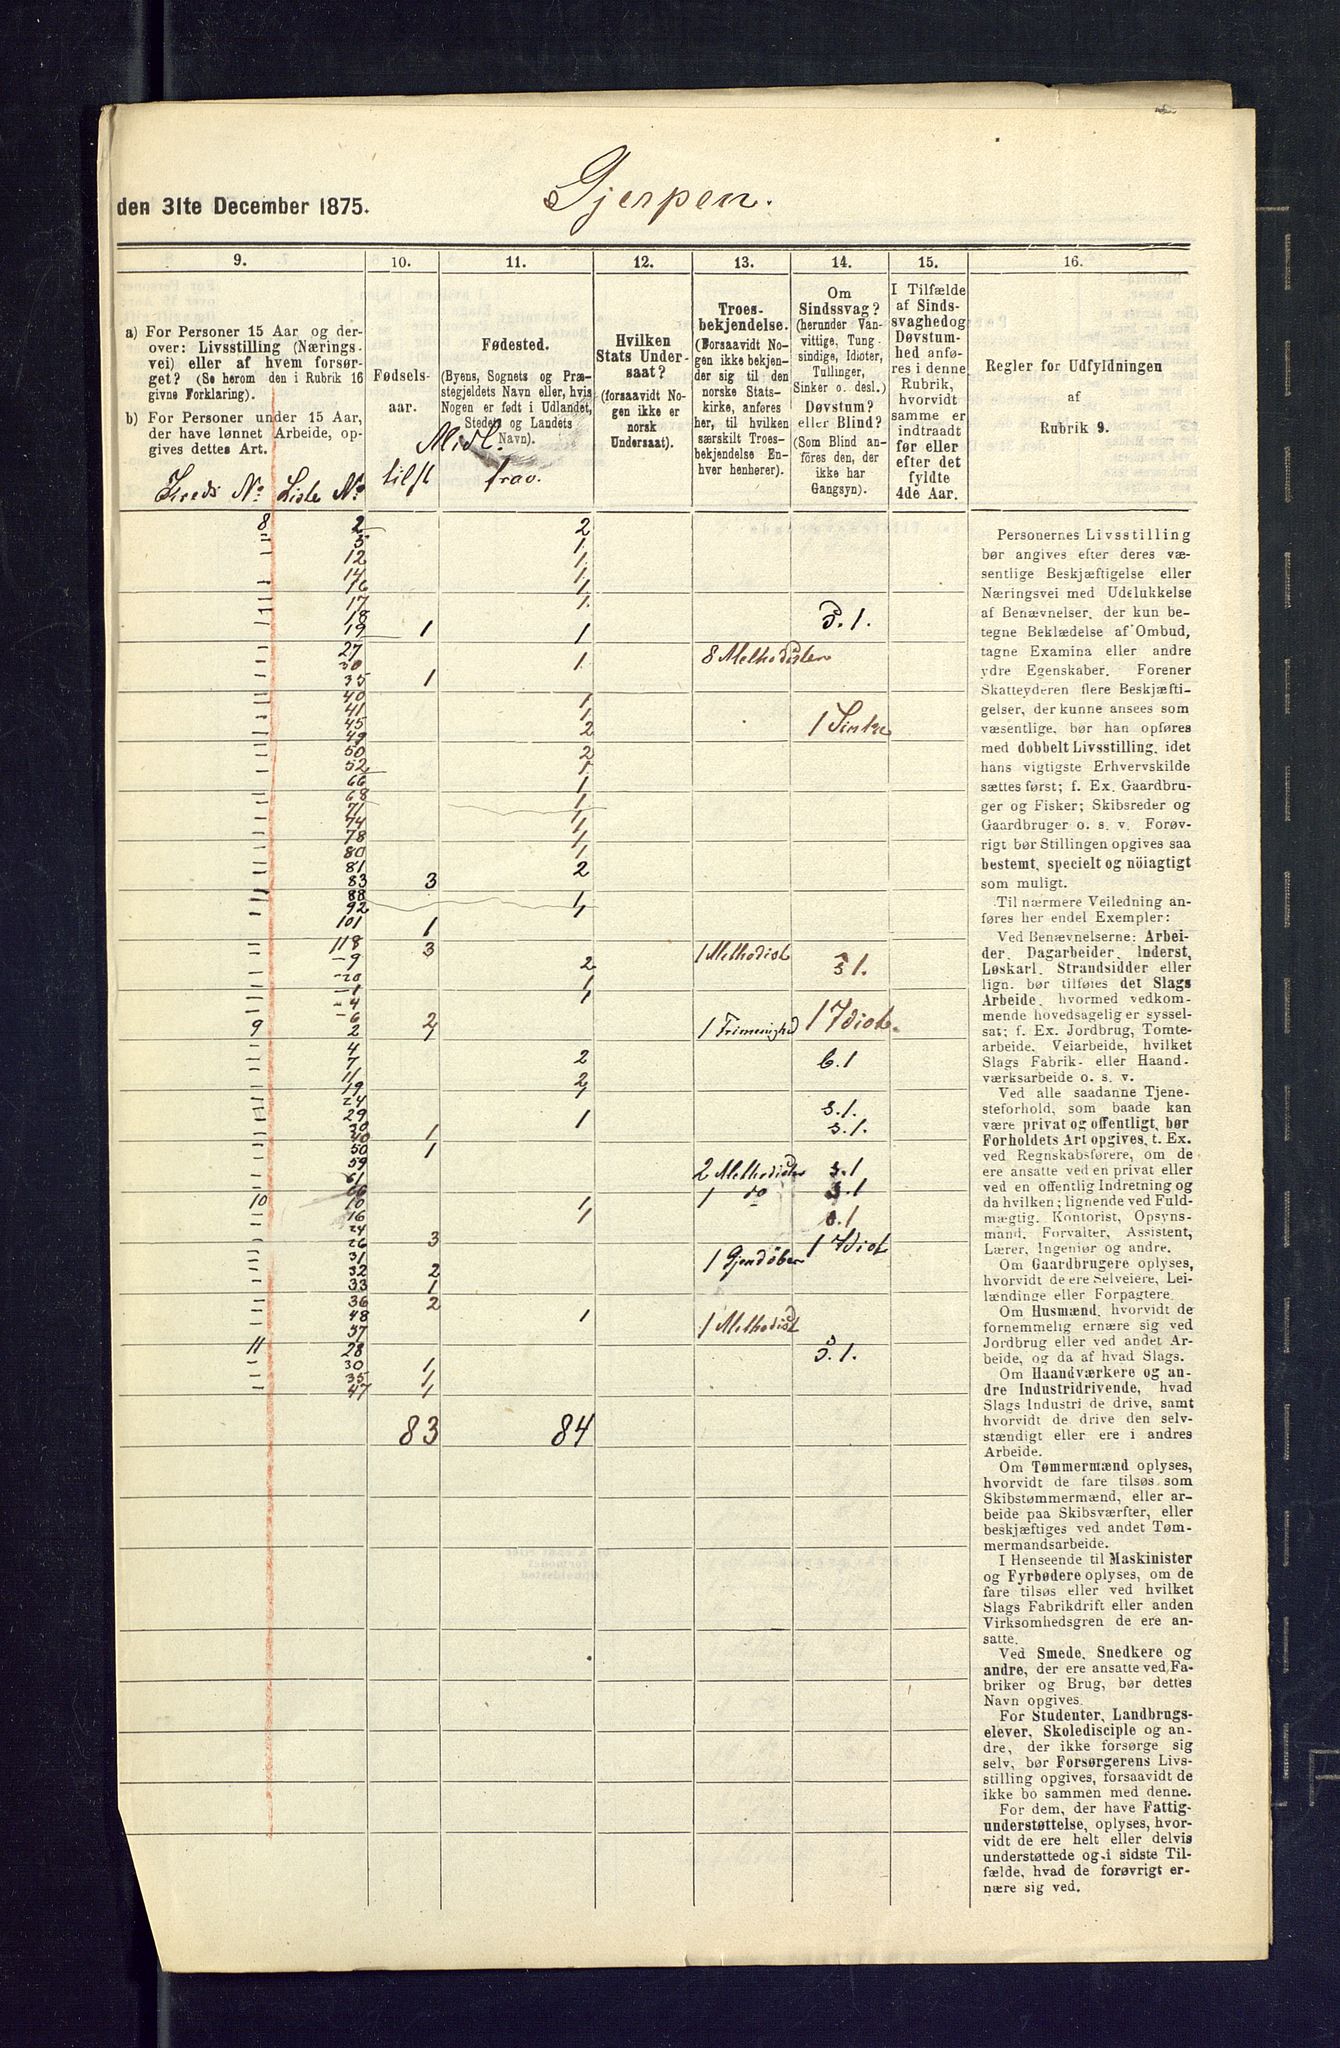 Gjerpen.
den 31te December 1875.
9.
10.
11.
12.
13.
14.
15.
16.
a) For Personer 15 Aar og der-
over: Livsstilling (Nærings-
vei) eller af hvem forsør-
get? (Se herom den i Rubrik 16
givne Forklaring).
b) For Personer under 15 Aar,
der have lønnet Arbeide, op-
gives dettes Art.
Kreds No Liste No
Fødsels-
aar.
tilst
Fødested.
(Byens, Sognets og Præ-
stegjeldets Navn eller, hvis
Nogen er født i Udlandet,
Stedets og Landets
Navn).
Midl.
frav.
Hvilken
Stats Under-
saat?
(forsaavidt No-
gen ikke er
norsk
Undersaat).
Troes-
bekjendelse.
(Forsaavidt No-
gen ikke bekjen-
der sig til den
norske Stats-
kirke, anføres
her, til hvilken
særskilt Troes-
bekjendelse En-
hver henhører).
Om
Sindssvag?
(herunder Van-
vittige, Tung-
sindige, Idioter,
Tullinger,
Sinker o. desl.)
Døvstum?
eller Blind?
(Som Blind an-
föres den, der
ikke har
Gangsyn).
I Tilfælde
af Sinds-
svaghed og
Døvstum-
hed anfø-
res i denne
Rubrik,
hvorvidt
samme er
indtraadt
før eller
efter det
fyldte
4de Aar.
Regler for Udfyldningen
af
Rubrik 9.
8 2 2
5 1
12 1
14 1
16 1
17 1
18 S. 1.
19 1 1
27 8 Methodister
30 1
35 1
40 1
41 1
45 2 1 Sinke
49
50 2
52 1
66 1
68 1
71 1
74 1
78 1
80 1
81 2
83 3
88 1
92 1
101 1
118 3 1 Methodist
-9 2 s 1.
-20 1
-1 1
-4
-6
9 2 2 1 Frimenighed 1 Idiot.
4 2 b. 1
7
11 2
19 1
24 s. 1.
29 1 s. 1.
30
40 1
50 1
59 2 Methodister s. 1
61 1 do s. 1
66
10 10 1
16 1
24
26 3 1 Idiot
31 1 Gjendøber
32 2
33 1
36 2
48 1 1 Methodist
57
11 28 s. 1.
30 1
35 1
47 1
83 84
Personernes Livsstilling
bør angives efter deres væ-
sentlige Beskjæftigelse eller
Næringsvei med Udelukkelse
af Benævnelser, der kun be-
tegne Beklædelse af Ombud,
tagne Examina eller andre
ydre Egenskaber. Forener
Skatteyderen flere Beskjæfti-
gelser, der kunne ansees som
væsentlige, bør han opføres
med dobbelt Livsstilling, idet
hans vigtigste Erhvervskilde
sættes først; f. Ex. Gaardbru-
ger og Fisker; Skibsreder og
Gaardbruger o. s. v. Forøv-
rigt bør Stillingen opgives saa
bestemt, specielt og nöiagtigt
som muligt.
Til nærmere Veiledning an-
føres her endel Exempler:
Ved Benævnelserne: Arbei-
der, Dagarbeider, Inderst,
Løskarl, Strandsidder eller
lign. bør tilføies det Slags
Arbeide, hvormed vedkom-
mende hovedsagelig er syssel-
sat; f. Ex. Jordbrug, Tomte-
arbeide, Veiarbeide, hvilket
Slags Fabrik- eller Haand-
værksarbeide o. s. v.
Ved alle saadanne Tjene-
steforhold, som baade kan
være privat og offentligt, bør
Forholdets Art opgives, t. Ex.
ved Regnskabsførere, om de
ere ansatte ved en privat eller
ved en offentlig Indretning og
da hvilken; lignende ved Fuld-
mægtig, Kontorist, Opsyns-
mand, Forvalter, Assistent,
Lærer, Ingeniør og andre.
Om Gaardbrugere oplyses,
hvorvidt de ere Selveiere, Lei-
lændinge eller Forpagtere.
Om Husmænd, hvorvidt de
fornemmelig ernære sig ved
Jordbrug eller ved andet Ar-
beide, og da af hvad Slags.
Om Haandværkere og an-
dre Industridrivende, hvad
Slags Industri de drive, samt
hvorvidt de drive den selv-
stændigt eller ere i andres
Arbeide.
Om Tømmermænd oplyses,
hvorvidt de fare tilsøs som
Skibstømmermænd, eller ar-
beide paa Skibsværfter, eller
beskjæftiges ved andet Tøm-
mermandsarbeide.
I Henseende til Maskinister
og Fyrbødere oplyses, om de
fare tilsøs eller ved hvilket
Slags Fabrikdrift eller anden
Virksomhedsgren de ere an-
satte.
Ved Smede, Snedkere og
andre, der ere ansatte ved Fa-
briker og Brug, bør dettes
Navn opgives.
For Studenter, Landbrugs-
elever, Skoledisciple og an-
dre, der ikke forsørge sig
selv, bør Forsørgerens Livs-
stilling opgives, forsaavidt de
ikke bo sammen med denne.
For dem, der have Fattig-
understøttelse, oplyses, hvor-
vidt de ere helt eller delvis
understøttede og i sidste Til-
fælde, hvad de forøvrigt er-
nære sig ved.